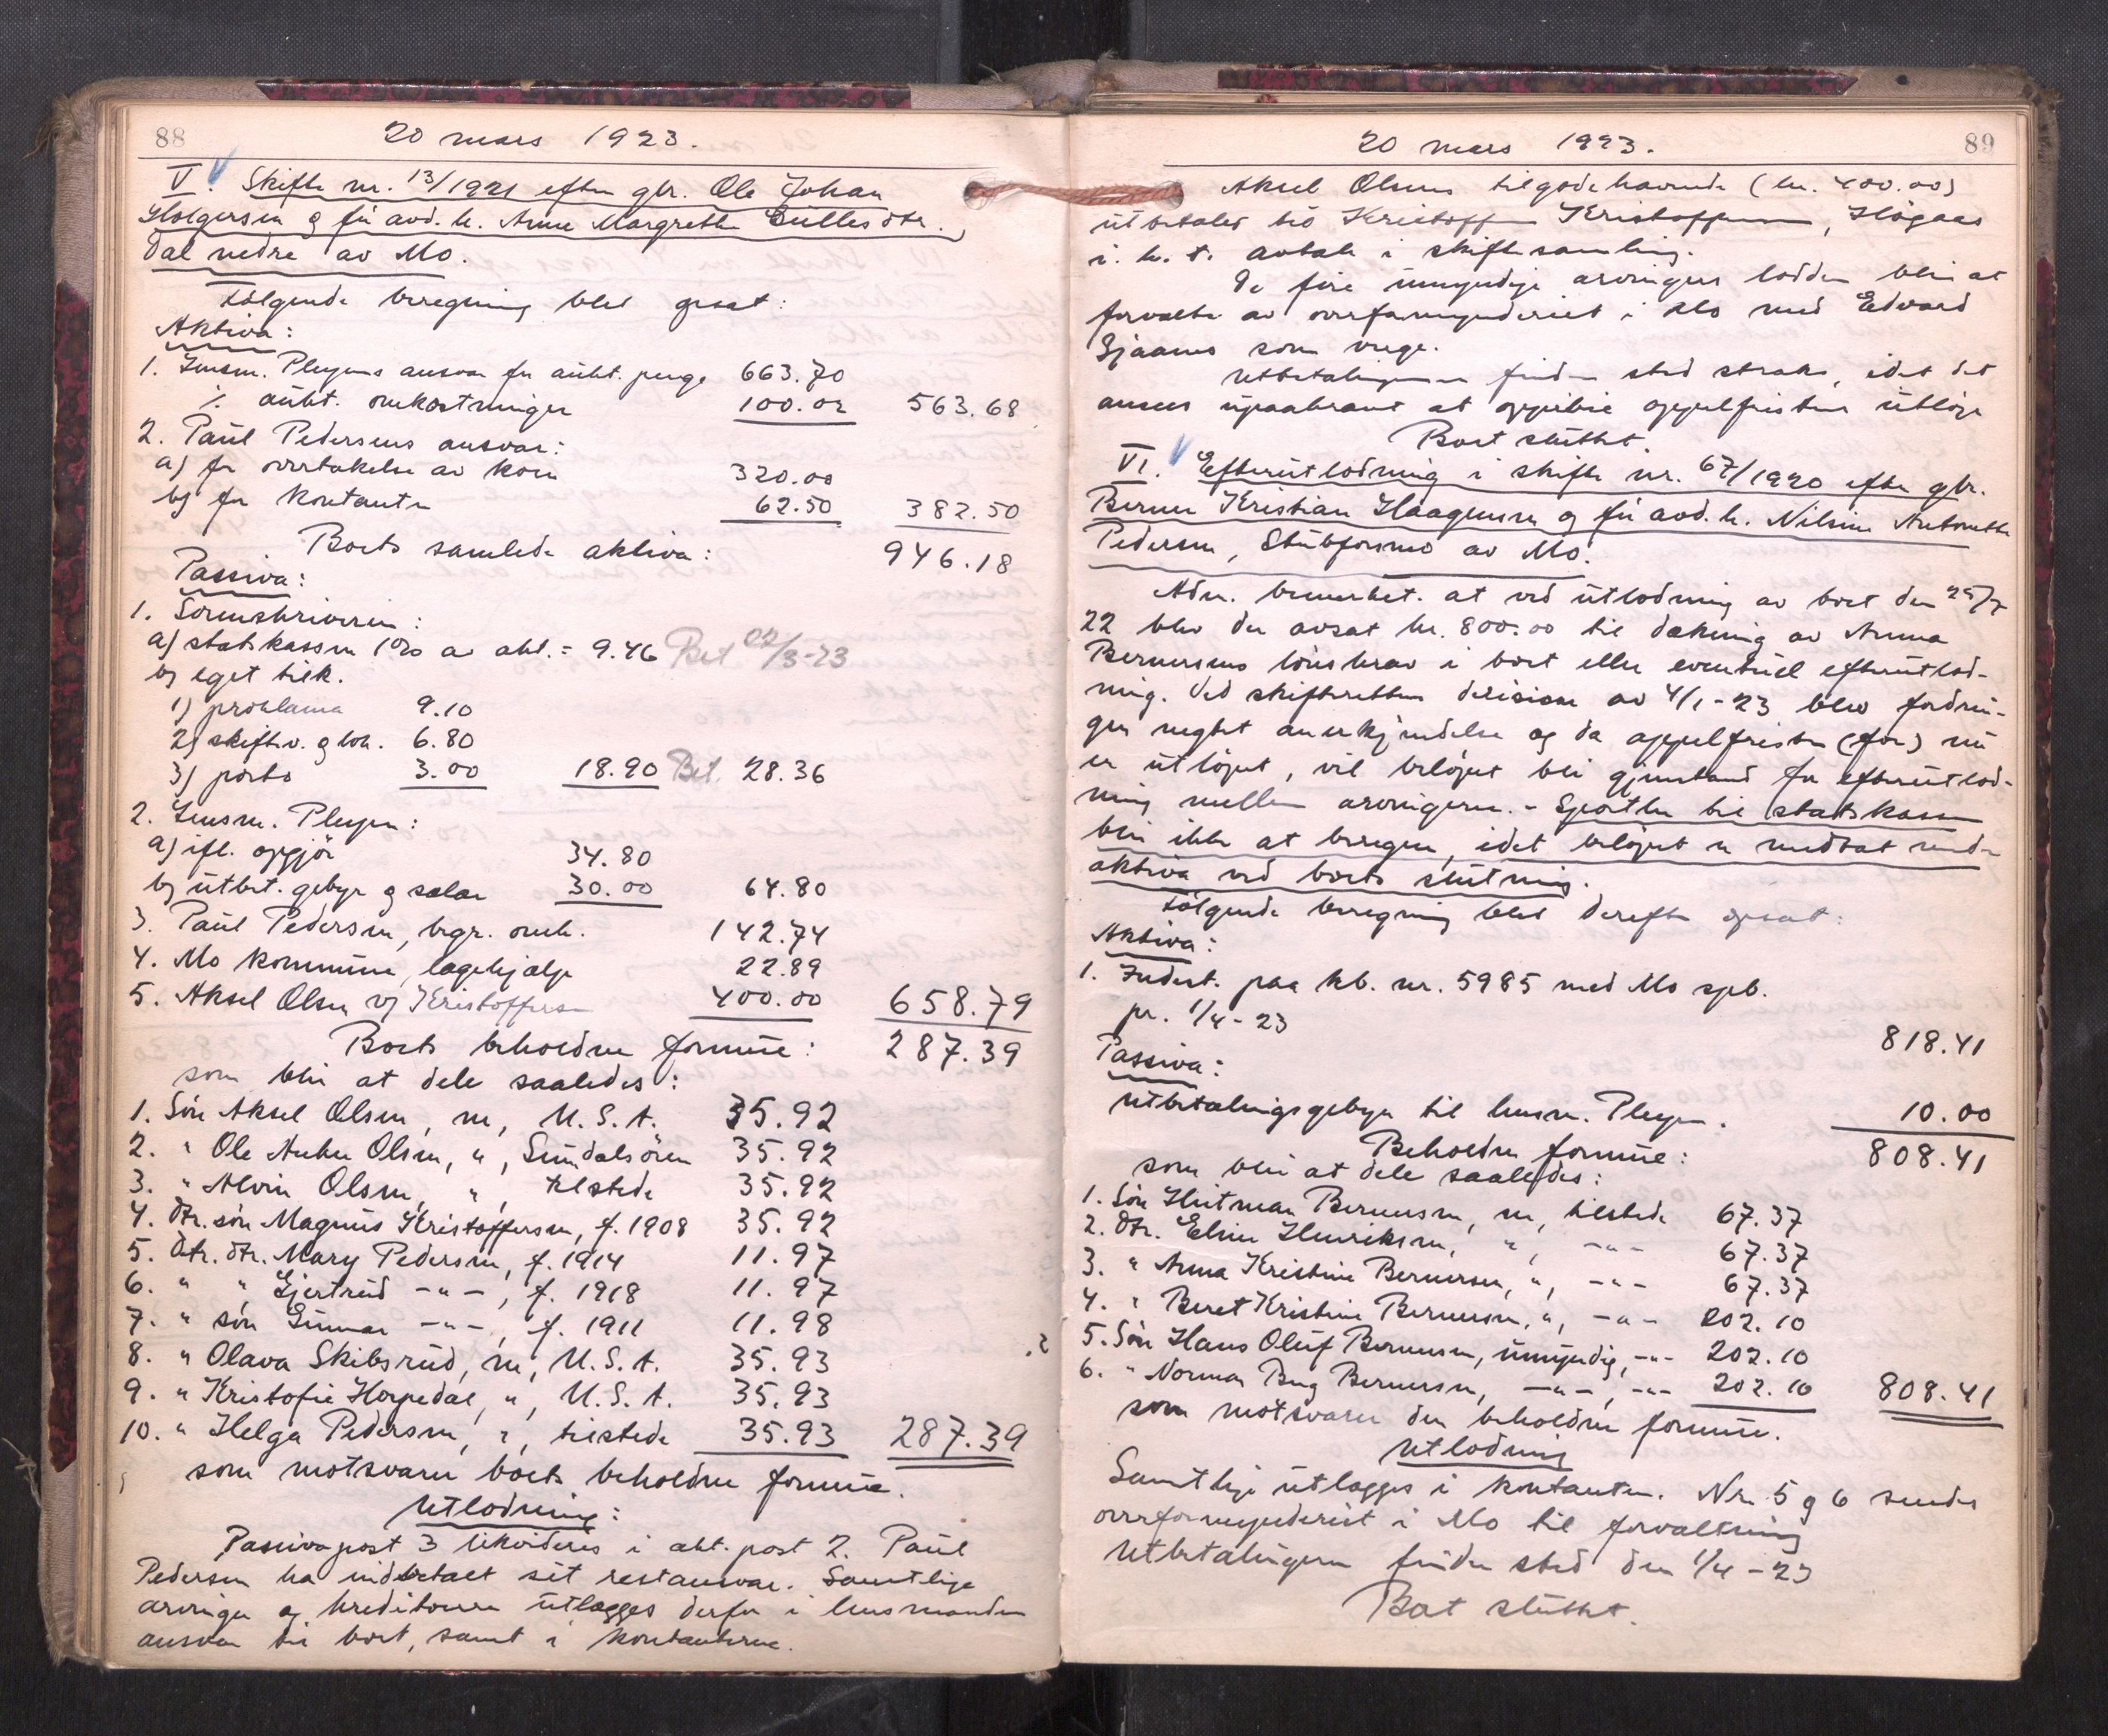 88
20 mars 1923.
V. Skifte nr. 13/1921 efter gbr. Ole Johan
Holgersen og før avd. h. Anne Margrethe Gullesdtr.,
Dal nedre av Mo.
Følgende beregning blev opsat:
Aktiva:
1. Lensm. Pleyms ansvar for aukt. penge 663.70
÷ aukt. omkostninger 100.02 563.68
2. Paul Pedersens ansvar:
a) for overtakelse av korn 320.00
b) for kontanter 62.50 382.50
Boets samlede aktiva: 946.18
Passiva:
1. Sorenskriveren:
a) statskassen 1% av akt. = 9.46 Bet 22/3-23
b) eget tilk.
1) proklama 9.10
2) skiftev. og lok. 6.80
3) porto 3.00 18.90 Bet. 28.36
2. Lensm. Pleym:
a) ifl. opgjør 34.80
b) utbet. gebyr og salær 30.00 64.80
3. Paul Pedersen, begr. omk. 142.74
4. Mo kommune, lægehjælp 22.89
5. Aksel Olsen v/ Kristoffersen 400.00 658.79
Boets beholdne formue: 287.39
som blir at dele saaledes:
1. Søn Aksel Olsen, m, U.S.A. 35.92
2. " Ole Anker Olsen, ", Sundalsören 35.92
3. " Alvin Olsen, ", tilstede 35.92
4. Dtr. søn Magnus Kristoffersen, f. 1908 35.92
5. Dtr. dtr. Mary Pedersen, f. 1914 11.97
6. " " Gjertrud -"-, f. 1918 11.97
7. " søn Gunnar -"-, f. 1911 11.98
8. " Olava Skibsrud, m, U.S.A. 35.93
9. " Kristofie Horpedal, ", U.S.A. 35.93
10. " Helga Pedersen, ", tilstede 35.93 287.39
som motsvarer boets beholdne formue.
Utlodning:
Passivapost 3 likvideres i akt. post 2. Paul
Pedersen ha indbetalt sit restansvar. Samtlige
arvinger og kreditorer utlægges derfor i lensmanden
ansvar til boet, samt i kontanterne.
89
20 mars 1923.
Aksel Olsens tilgodehavende (kr. 400.00)
utbetales til Kristoffer Kristoffersen, Högaas
i. h. t. avtale i skiftesamling.
De fire umyndige arvingers lodder blir at
forvalte av overformynderiet i Mo med Edvard
Sjaanes som verge.
Utbetalingen finder sted straks, idet det
ansees upaakrævt at oppebie appelfristens utløp
Boet sluttet.
VI. Efterutlodning i skifte nr. 67/1920 efter gbr.
Berner Kristian Haagensen og før avd. h. Nilsine Antonette
Pedersen, Stubforsmo av Mo.
Adm. bemerket. at ved utlodning av boet den 25/7
22 blev der avsat kr. 800.00 til dækning av Anna
Bernersens lønskrav i boet eller eventuel efterutlod-
ning. Ved skifterettens decision av 4/1-23 blev fordrin-
gen negtet anerkjendelse og da appelfristen (for) nu
er utløpet, vil beløpet bli gjenstand for efterutlod-
ning mellem arvingerne. - Sportler til statskassen
blir ikke at beregne, idet beløpet er medtat under
aktiva ved boets slutning.
Følgende beregning blev derefter opsat:
Aktiva:
1. Indest. paa kb. nr. 5985 med Mo spb.
pr. 1/4-23 818.41
Passiva:
Utbetalingsgebyr til lensm. Pleym. 10.00
Beholdne formue: 808.41
som blir at dele saaledes:
1. Søn Hitman Bernersen, m, tilstede 67.37
2. Dtr. Eline Henriksen, ", -"- 67.37
3. " Anna Kristine Bernersen, ", -"- 67.37
4. " Beret Kristine Bernersen, ", -"- 202.10
5. Søn Hans Oluf Bernersen, umyndig, -"- 202.10
6. " Norman Bug Bernersen, -"-, -"- 202.10 808.41
som motsvarer den beholdne formue.
Utlodning
Samtlige utlægges i kontanter. Nr. 5 og 6 sendes
overformynderiet i Mo til forvaltning
Utbetalingen finder sted den 1/4-23
Boet sluttet.